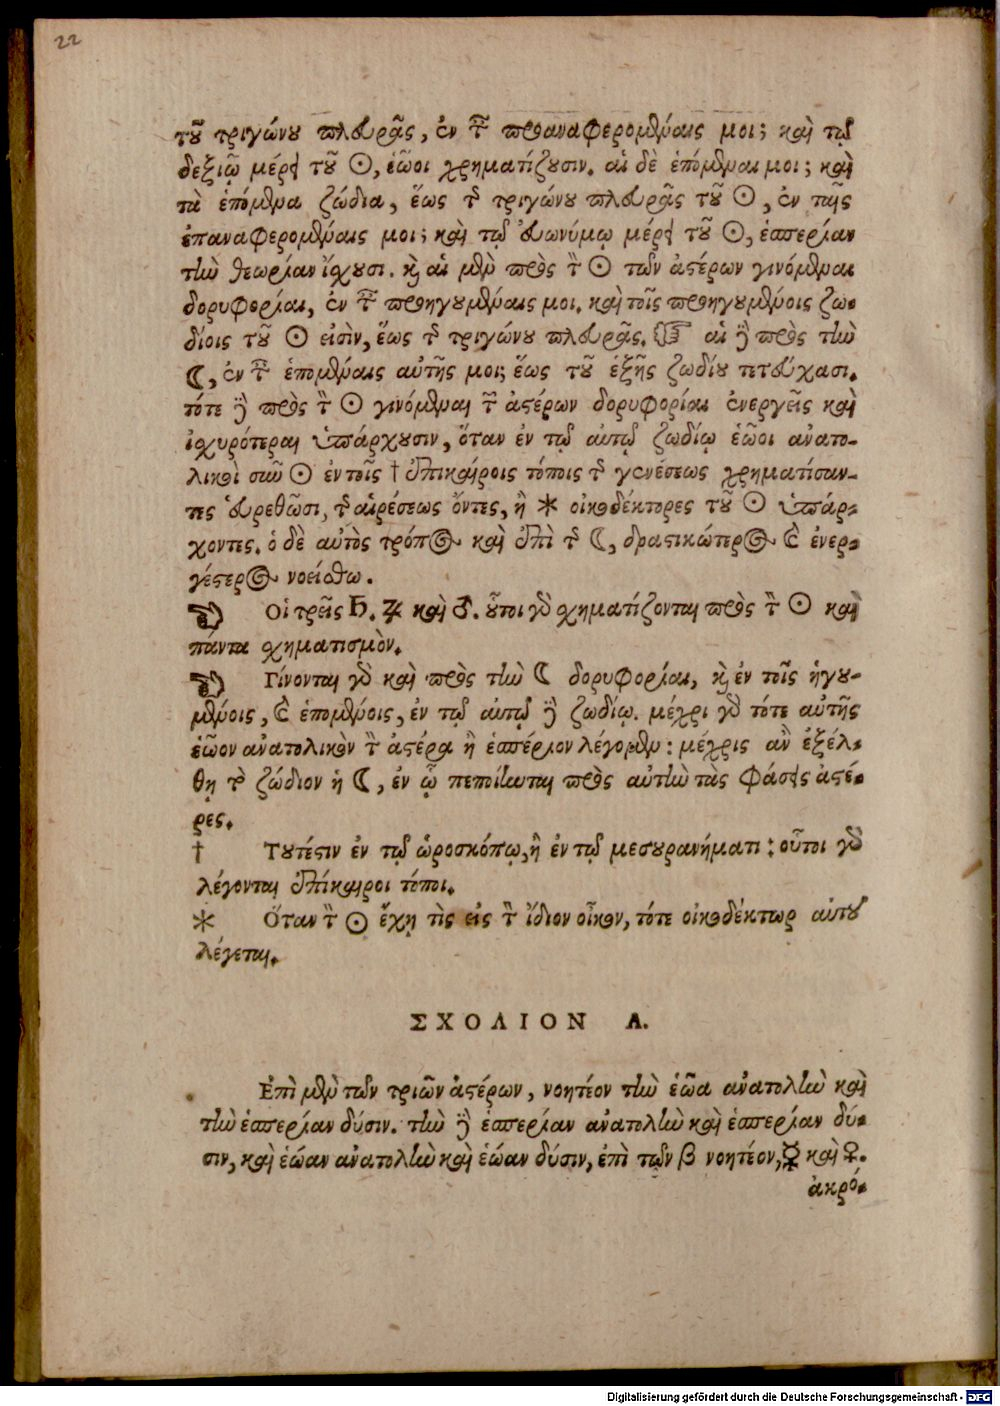 22
τοῦ τριγώνου πλευρᾶς, ἐν ταῖς προαναφερομέναις μοι; καὶ τῷ
δεξιῷ μέρει τοῦ ☉, ἑῷοι χρηματίζουσιν. αἱ δὲ ἑπόμεναι μοι; καὶ
τὰ ἑπόμενα ζώδια, ἕως τῆς τριγώνου πλευρᾶς τοῦ ☉, ἐν ταῖς
ἐπαναφερομέναις μοι; καὶ τῷ εὐωνύμῳ μέρει τοῦ ☉, ἑσπερίαν
τὴν θεωρίαν ἴσχουσι. καὶ αἱ μὲν πρὸς τὸν ☉ τῶν ἀστέρων γινόμεναι
δορυφορίαι, ἐν ταῖς προηγουμέναις μοι. καὶ τοῖς προηγουμένοις ζω-
δίοις τοῦ ☉ εἰσὶν, ἕως τῆς τριγώνου πλευρᾶς. ☞ αἱ δὲ πρὸς τὴν
☾, ἐν ταῖς ἑπομέναις αὐτῆς μοι; ἕως τοῦ ἑξῆς ζωδίου τετεύχασι.
τότε δὲ πρὸς τὸν ☉ γινόμεναι τῶν ἀστέρων δορυφορίαι ἐνεργεῖς καὶ
ἰσχυρότεραι ὑπάρχουσιν, ὅταν ἐν τῷ αὐτῷ ζωδίῳ ἑῷοι ἀνατο-
λικοὶ σὺν ☉ ἐν τοῖς † ἐπικαίροις τόποις τῆς γενέσεως χρηματίσαν-
τες εὑρεθῶσι, τῆς αἱρέσεως ὄντες, ἢ * οἰκοδέκτορες τοῦ ☉ ὑπάρ-
χοντες. ὁ δὲ αὐτὸς τρόπος καὶ ἐπὶ τῆς ☾, δραστικώτερος καὶ ἐνερ-
γέστερος νοείσθω.
☞ Οἱ τρεῖς ♄. ♃ καὶ ♂. οὗτοι γὰρ σχηματίζονται πρὸς τὸν ☉ καὶ
πάντα σχηματισμὸν.
☞ Γίνονται γὰρ καὶ πρὸς τὴν ☾ δορυφορίαι, καὶ ἐν τοῖς ἡγου-
μένοις, καὶ ἑπομένοις, ἐν τῷ αὐτῷ δὲ ζωδίῳ. μέχρι γὰρ τότε αὐτῆς
ἑῷον ἀνατολικὸν τὸν ἀστέρα ἢ ἑσπέριον λέγομεν: μέχρις ἂν ἐξέλ-
θῃ τὸ ζώδιον ἡ ☾, ἐν ᾧ πεποίηνται πρὸς αὐτὴν τὰς φάσεις ἀστέ-
ρες.
† Τουτέστιν ἐν τῷ ὡροσκόπῳ, ἢ ἐν τῷ μεσουρανήματι: οὗτοι γὰρ
λέγονται ἐπίκαιροι τόποι.
* Ὅταν τὸν ☉ ἔχῃ τὶς εἰς τὸν ἴδιον οἶκον, τότε οἰκοδέκτωρ αὐτοῦ
λέγεται.
ΣΧΟΛΙΟΝ Α.
Ἐπὶ μὲν τῶν τριῶν ἀστέρων, νοητέον τὴν ἑῴα ἀνατολὴν καὶ
τὴν ἑσπερίαν δύσιν. τὴν δὲ ἑσπερίαν ἀνατολὴν καὶ ἑσπερίαν δύ-
σιν, καὶ ἑῴαν ἀνατολὴν καὶ ἑῴαν δύσιν, ἐπὶ τῶν β νοητέον, ☿ καὶ ♀.
ἀκρό-
Digitalisierung gefördert durch die Deutsche Forschungsgemeinschaft - DFG